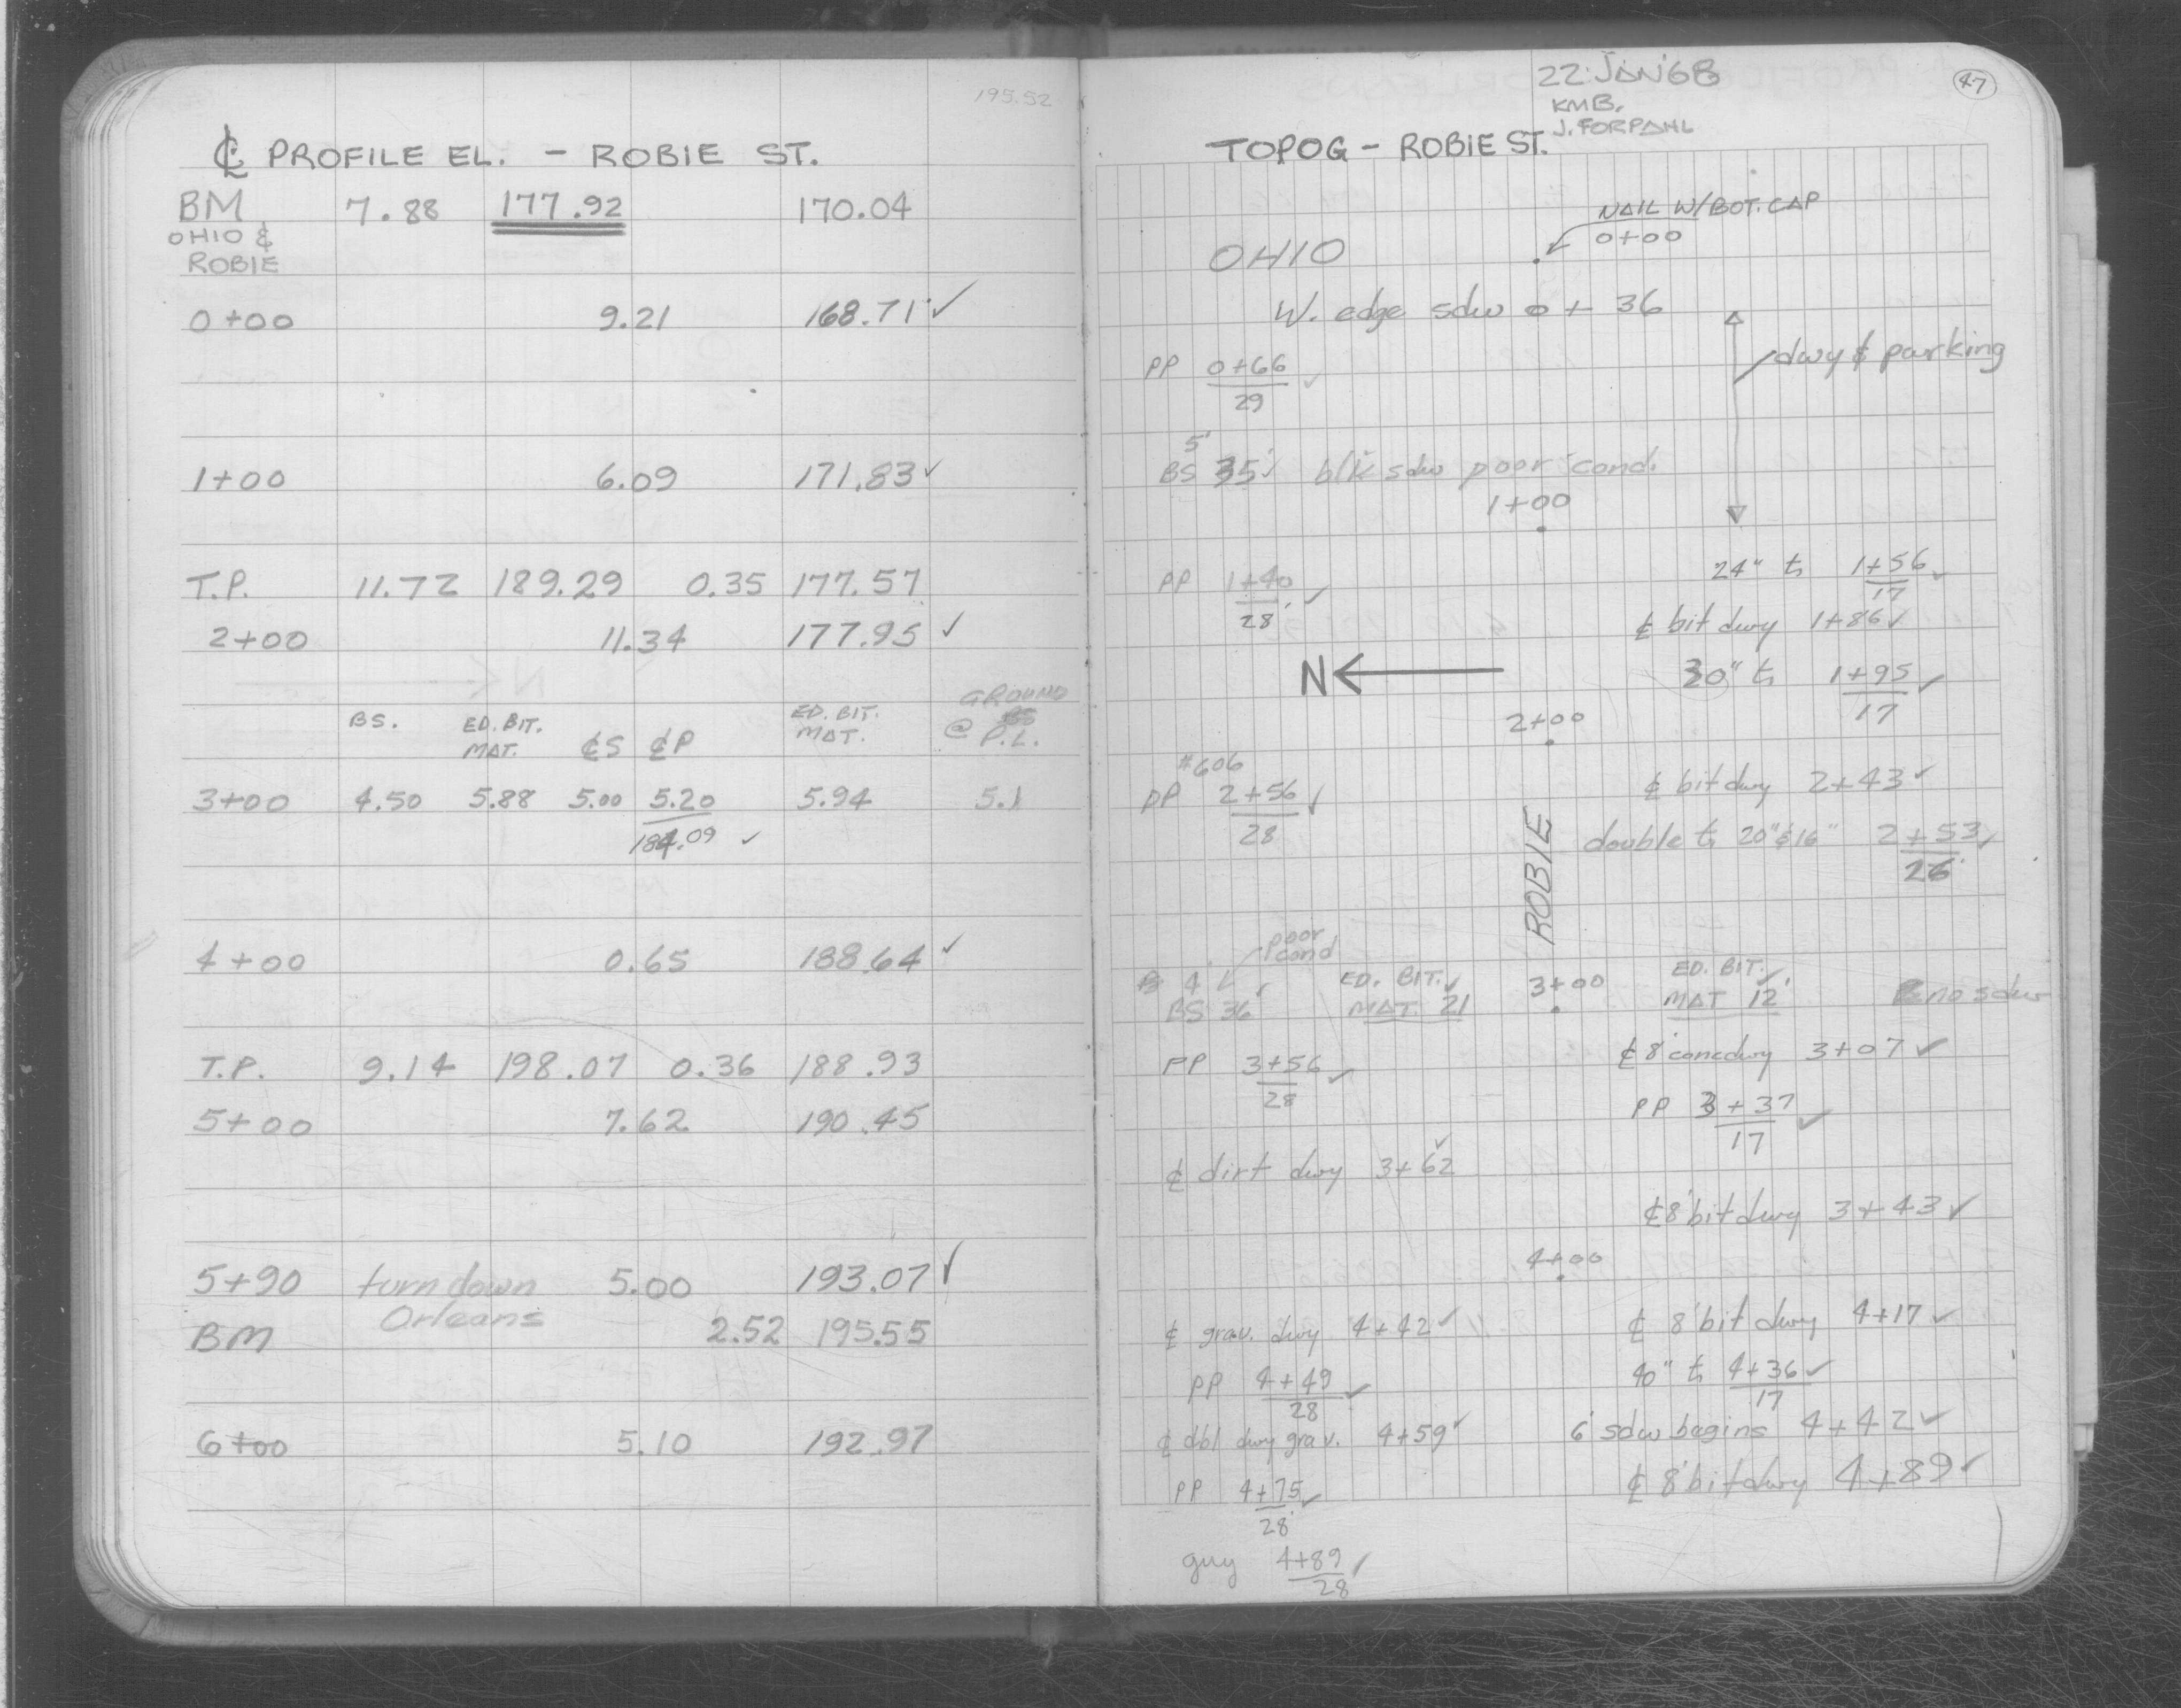 195.52
℄ PROFILE EL. - ROBIE ST.
BM 7.88 177.92 170.04
OHIO &
ROBIE
0+00 9.21 168.71 ✓
1+00 6.09 171.83 ✓
T.P. 11.72 189.29 0.35 177.57
2+00 11.34 177.95 ✓
BS. ED. BIT. MAT. ℄S ℄P ED. BIT. MAT. GROUND @ P.L.
3+00 4.50 5.88 5.00 5.20 5.94 5.1
184.09 ✓
4+00 0.65 188.64 ✓
T.P. 9.14 198.07 0.36 188.93
5+00 7.62 190.45
5+90 turn down 5.00 193.07 ✓
Orleans
BM 2.52 195.55
6+00 5.10 192.97
22 JAN '68
47
KMB.
J. FORPAHL
TOPOG - ROBIE ST.
NAIL W/BOT. CAP
0+00
OHIO
W. edge sdw 0+36
dwy & parking
PP 0+66 ✓
29
5'
BS 35' ✓ blk sdw poor cond.
1+00
24" tr 1+56 ✓
17
PP 1+40 ✓
28'
℄ bit dwy 1+86 ✓
N
30" tr 1+95 ✓
17
2+00
#606
PP 2+56 ✓
28
℄ bit dwy 2+43 ✓
ROBIE
double tr 20" & 16" 2+53 ✓
26
poor
cond
4' ED. BIT. ✓ 3+00 ED. BIT. ✓
BS 36' MAT. 21 MAT 12' no sdw
℄ 8' conc dwy 3+07 ✓
PP 3+56 ✓
28
PP 3+37 ✓
17
℄ dirt dwy 3+62 ✓
℄ 8' bit dwy 3+43 ✓
4+00
℄ grav. dwy 4+42 ✓ ℄ 8' bit dwy 4+17 ✓
PP 4+49 ✓
28
40" tr 4+36 ✓
17
℄ dbl dwy grav. 4+59 ✓ 6' sdw begins 4+42 ✓
PP 4+75 ✓
28'
℄ 8' bit dwy 4+89 ✓
guy 4+89 ✓
28